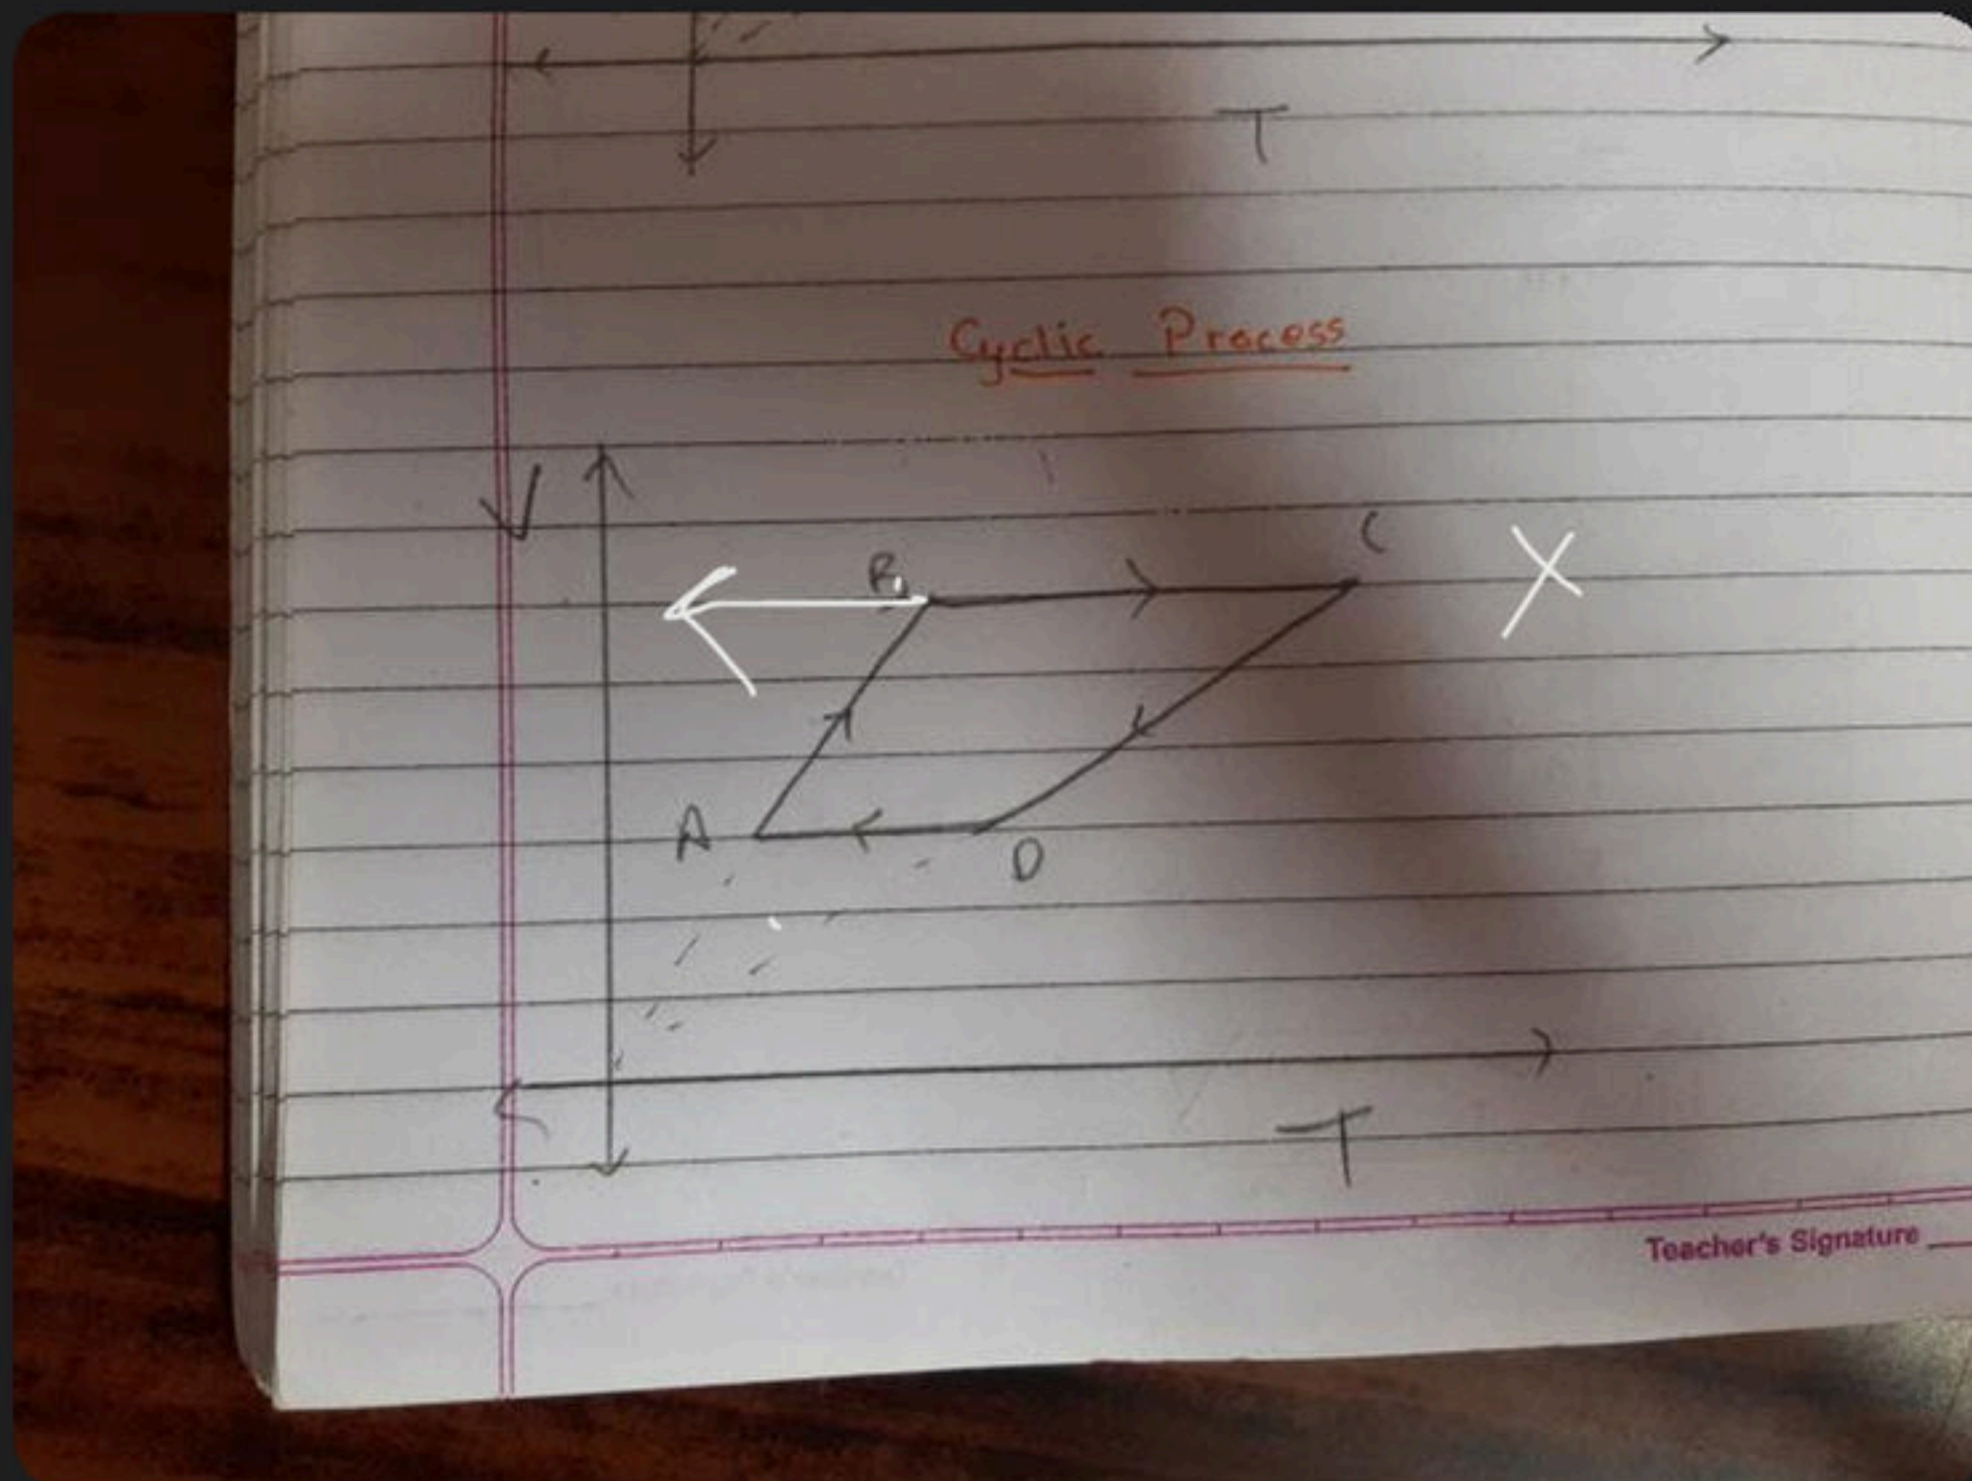 T
Cyclic Process
V
B
C
X
A
D
T
Teacher's Signature